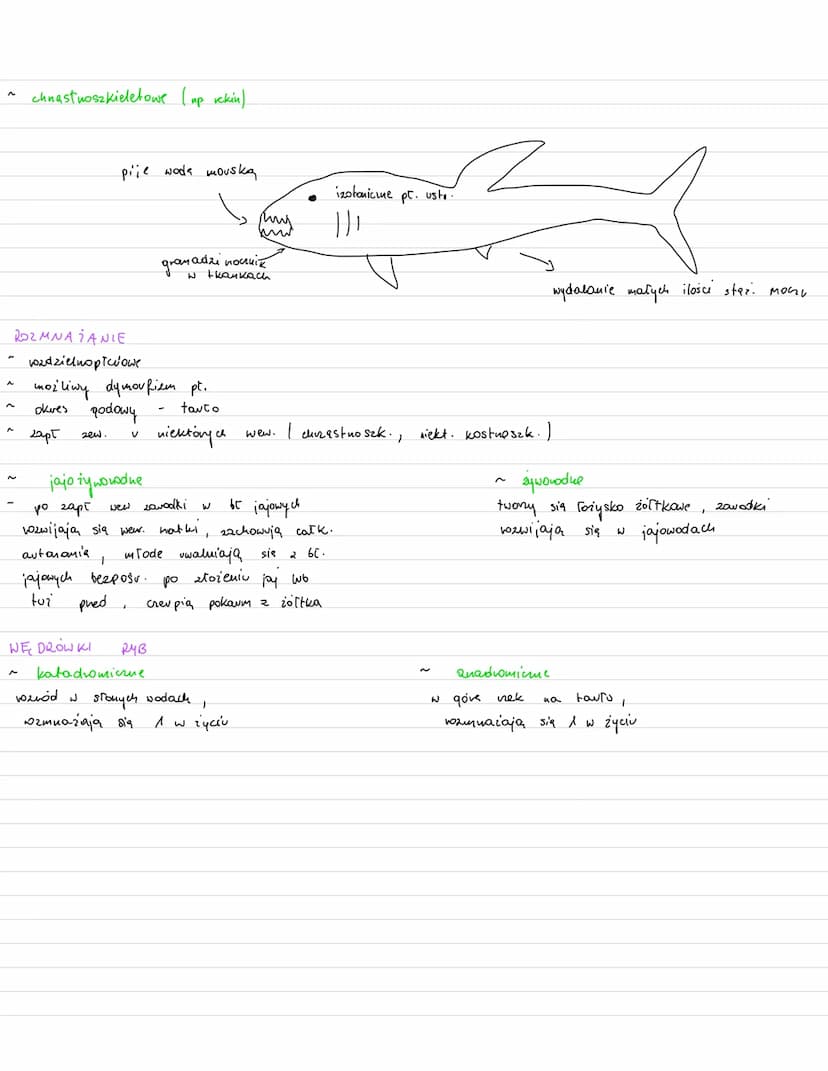 ~ chrząstnoszkieletowe (np rekin)
pije wodę morską
izotoniczne pł. ustr.
gromadzi mocznik
w tkankach
wydalanie małych ilości stęż. moczu
ROZMNAŻANIE
~ rozdzielnopłciowe
~ możliwy dymorfizm pł.
~ okres godowy - tarło
~ zapł zew. u niektórych wew. (chrząstnoszk., niekt. kostnoszk.)
~ jajożyworodne
- po zapł wew zarodki w bł jajowych
rozwijają się wew. matki, zachowują całk.
autonomię, młode uwalniają się z bł.
jajowych bezpośr. po złożeniu jaj lub
tuż przed, czerpią pokarm z żółtka
~ żyworodne
tworzy się łożysko żółtkowe, zarodki
rozwijają się w jajowodach
WĘDRÓWKI RYB
~ katadromiczne
rozród w słonych wodach,
rozmnażają się 1 w życiu
~ anadromiczne
w górę rzek na tarło,
rozmnażają się 1 w życiu